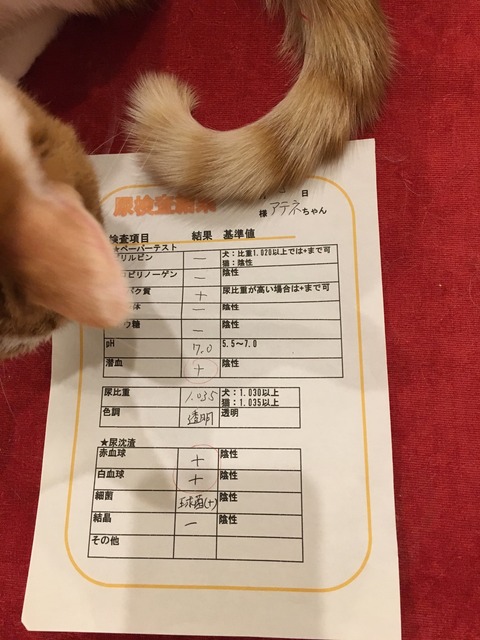 尿検査結果
日
様 アテネちゃん
検査項目 結果 基準値
★ペーパーテスト
リルビン － 犬：比重1.020以上では+まで可
猫：陰性
ビリノーゲン － 陰性
パク質 + 尿比重が高い場合は+まで可
体 － 陰性
ウ糖 － 陰性
pH 7.0 5.5～7.0
潜血 + 陰性
尿比重 1.035 犬：1.030以上
猫：1.035以上
色調 透明 透明
★尿沈渣
赤血球 + 陰性
白血球 + 陰性
細菌 球菌(+) 陰性
結晶 － 陰性
その他